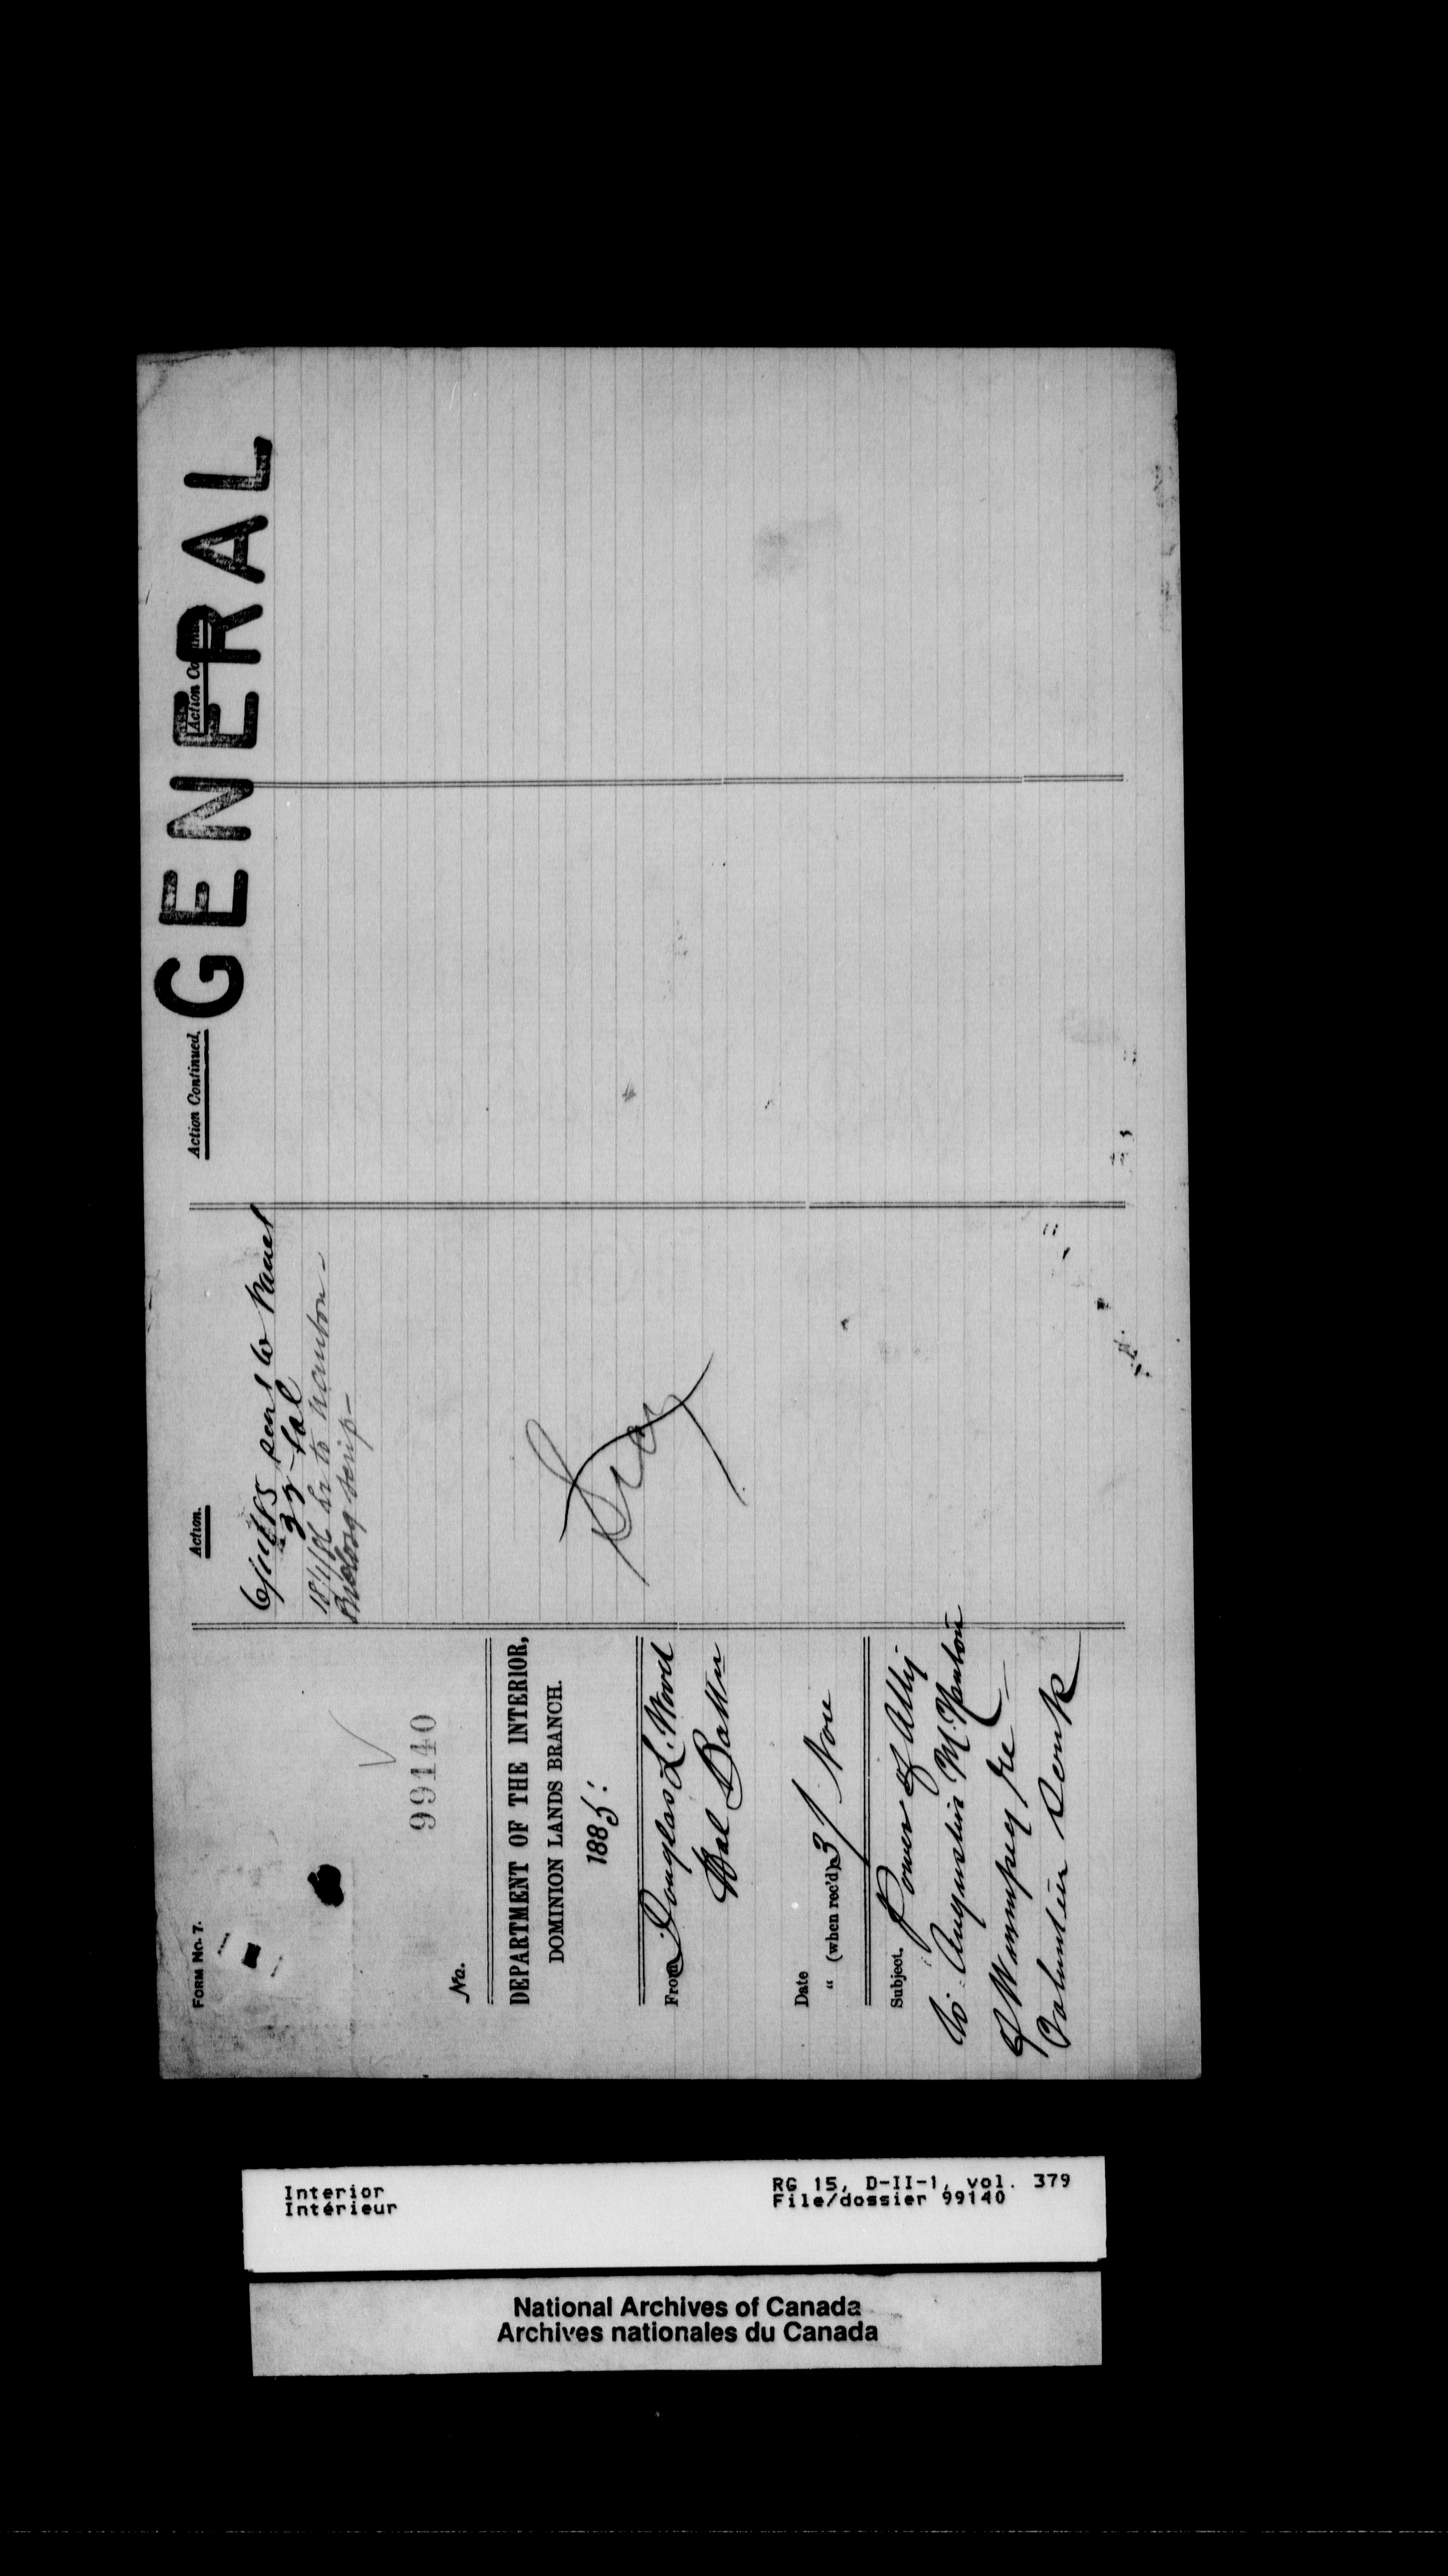 FORM No. 7.
99140
No.
DEPARTMENT OF THE INTERIOR,
DOMINION LANDS BRANCH.
1885.
From Douglas L. Wood
Hal Batt
Date
" (when rec'd) 3/ Nov
Subject. Power of Atty
to Augustus M. Nanton
of Winnipeg re
Volunteer Scrip
Action.
6/11/85 sent to
18/1/86 Lr to Nanton -
scrip -
Action Continued.
GENERAL
Action Continued.
Interior
Intérieur
RG 15, D-II-1, vol. 379
File/dossier 99140
National Archives of Canada
Archives nationales du Canada